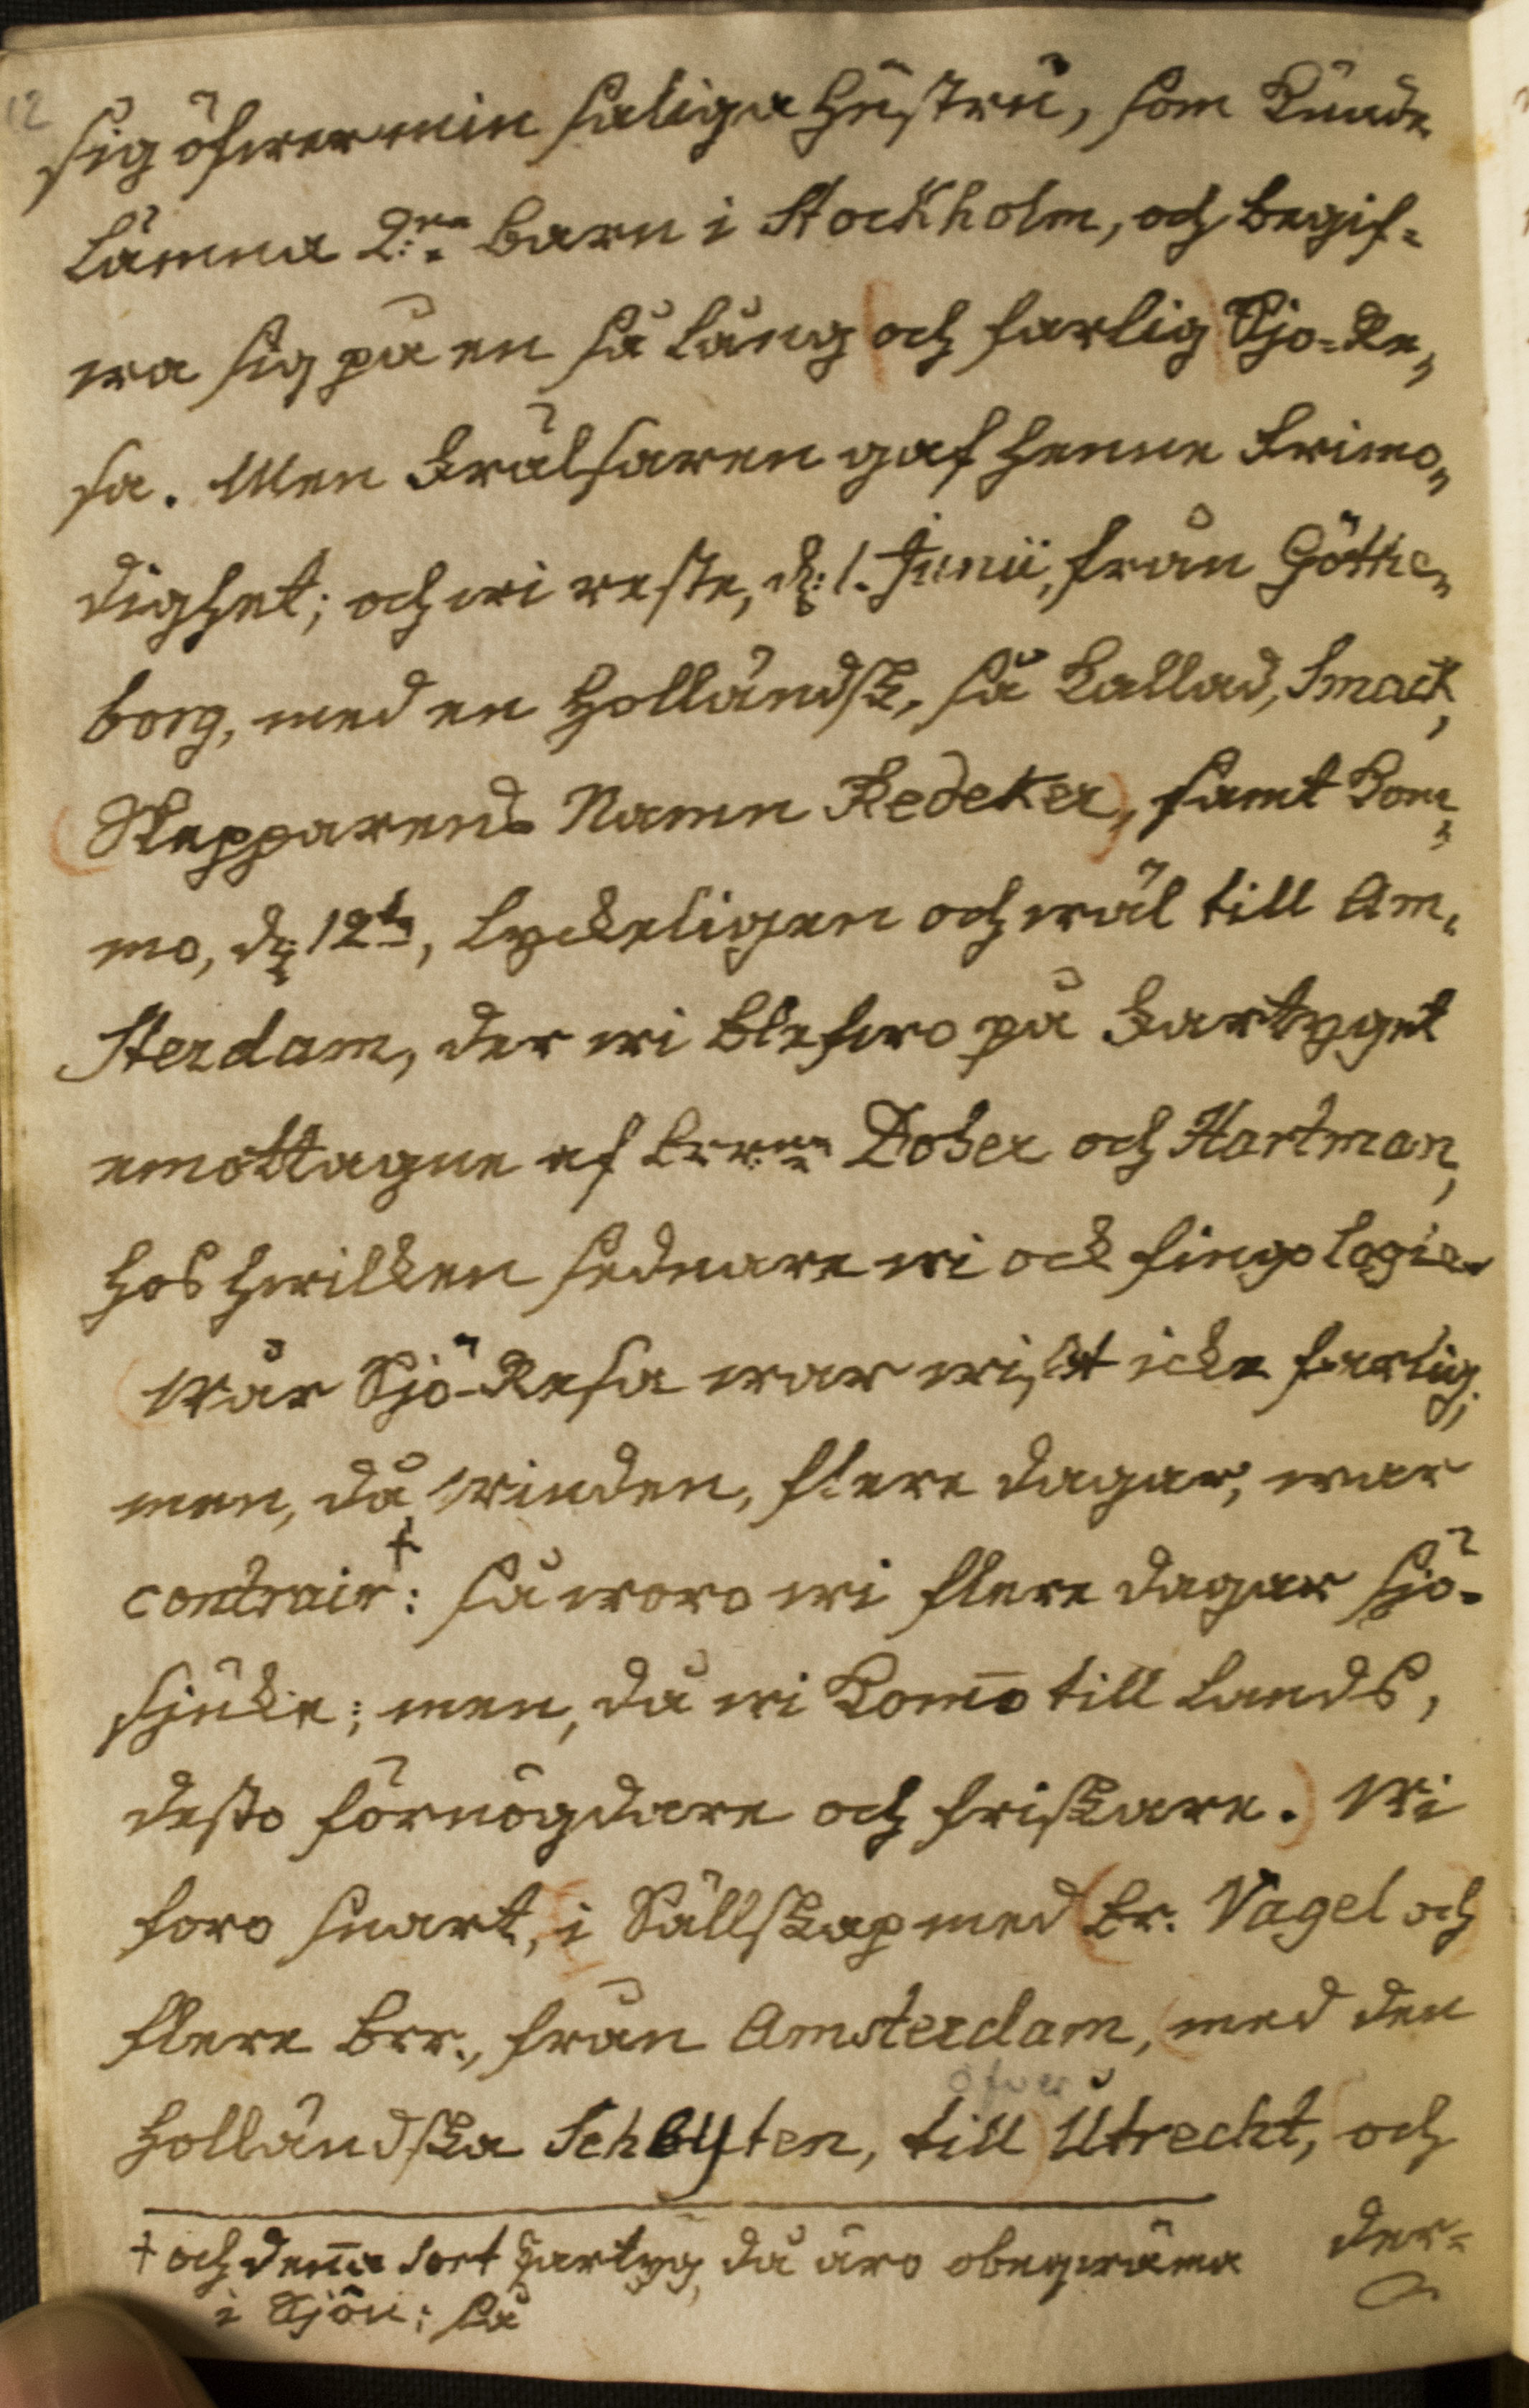 12
sig öfwer min saliga Hustru, som kunde
lämna 2:ne Barn i Stockholm, och begif-
wa sig på en så lång och farlig Sjö-Re-
sa. Men Frälsaren gaf henne Frimo-
dighet; och wi reste, d: 1. Junii, från Göthe-
borg, med en Holländsk, så kallad, Smack,
(Skepparens Namn Redeker), samt kom-
mo, d: 12te, lyckeligen och wäl till Am-
sterdam, der wi blefwo på Fartyget
emottagne af Brr:ne Dober och Hartman,
hos hwilken sednare wi ock fingo Logie.
(Wår Sjö-Resa war wisst icke farlig;
men, då Winden, flere dagar, war
contrair†: så woro wi flere dagar sjö-
sjuke; men, då wi kom̅o till Lands,
desto förnögdare och friskare.) Wi
foro snart, i Sällskap med (Br. Vagel och
flere Brr., från Amsterdam, (med den
öfver
Holländska Schuyten, till) Utrecht, och
† och den̅a sort Fartyg då äro obeqwäma
i Sjön: så
der-